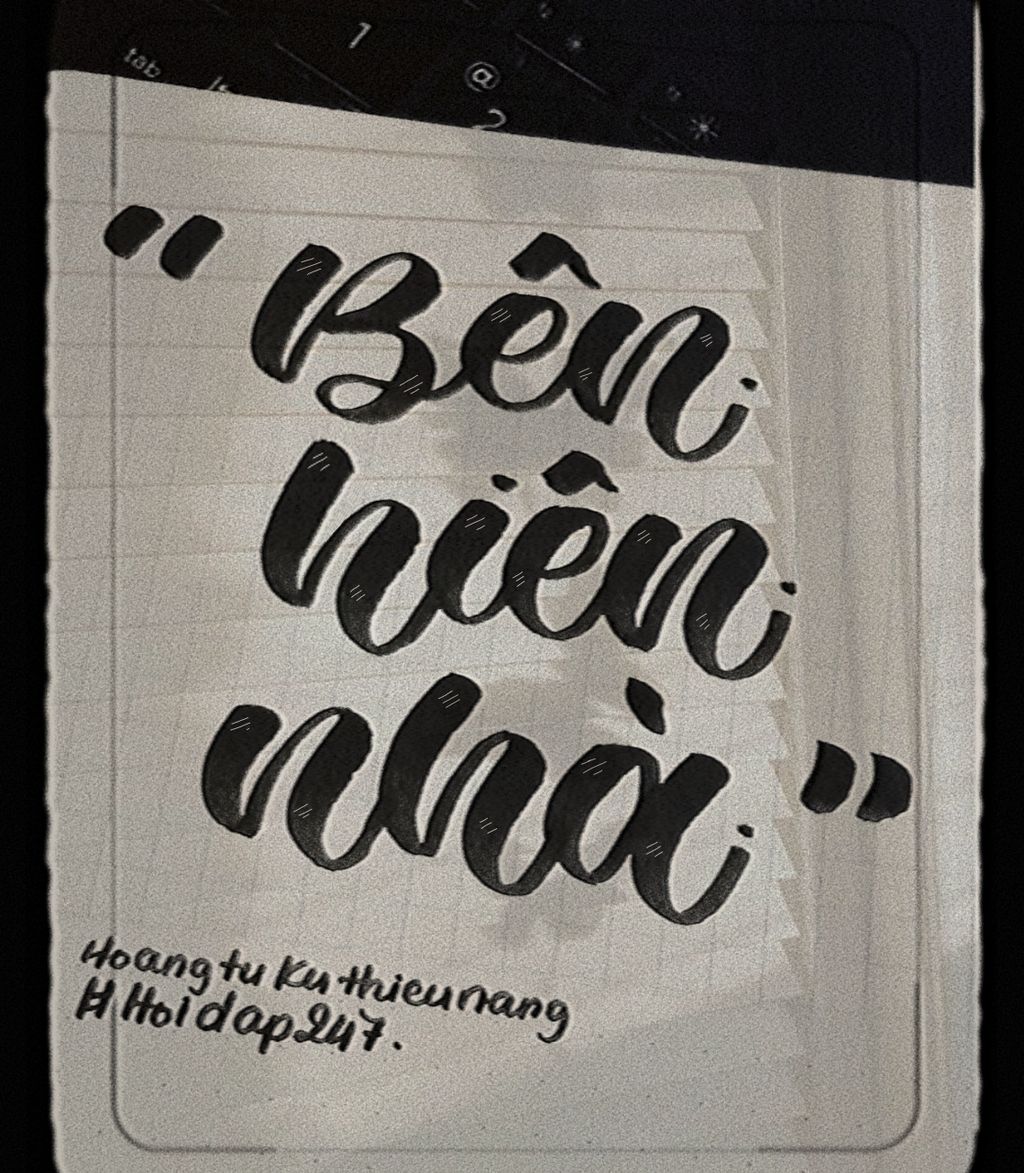 tab
1
@
2
*
"Bên
hiên
nhà"
Hoangtu Ku thieunang
#Hoidap247.